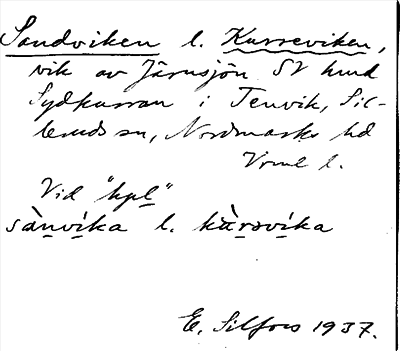 Sandviken l. Kurreviken,
vik av Järnsjön SV knud
Sydkurran i Tenvik, Sil-
leruds sn, Nordmarks hd
Vrml l.
Vid "hpl"
sànvíka l. kùrəvíka
E. Silfors 1937.